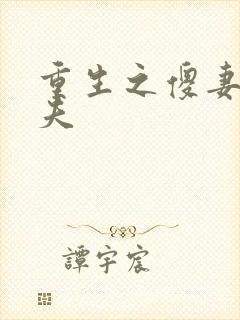 重生之傻妻
夫
譚宇宸